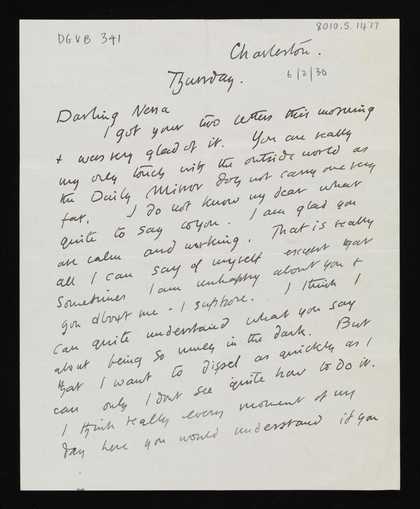 DGVB 341
8010.5.1477
Charleston.
Thursday.
6/2/30
Darling Nessa
I got your two letters this morning
& was very glad of it. You are really
my only touch with the outside world as
the Daily Mirror does not carry one very
far. I do not know my dear what
quite to say to you. I am glad you
are calm and working. That is really
all I can say of myself except that
sometimes I am unhappy about you &
you about me - I suppose. I think I
can quite understand what you say
about being so much in the dark. But
that I want to dispel as quickly as I
can only I dont see quite how to do it.
I think really every moment of my
day here you would understand if you